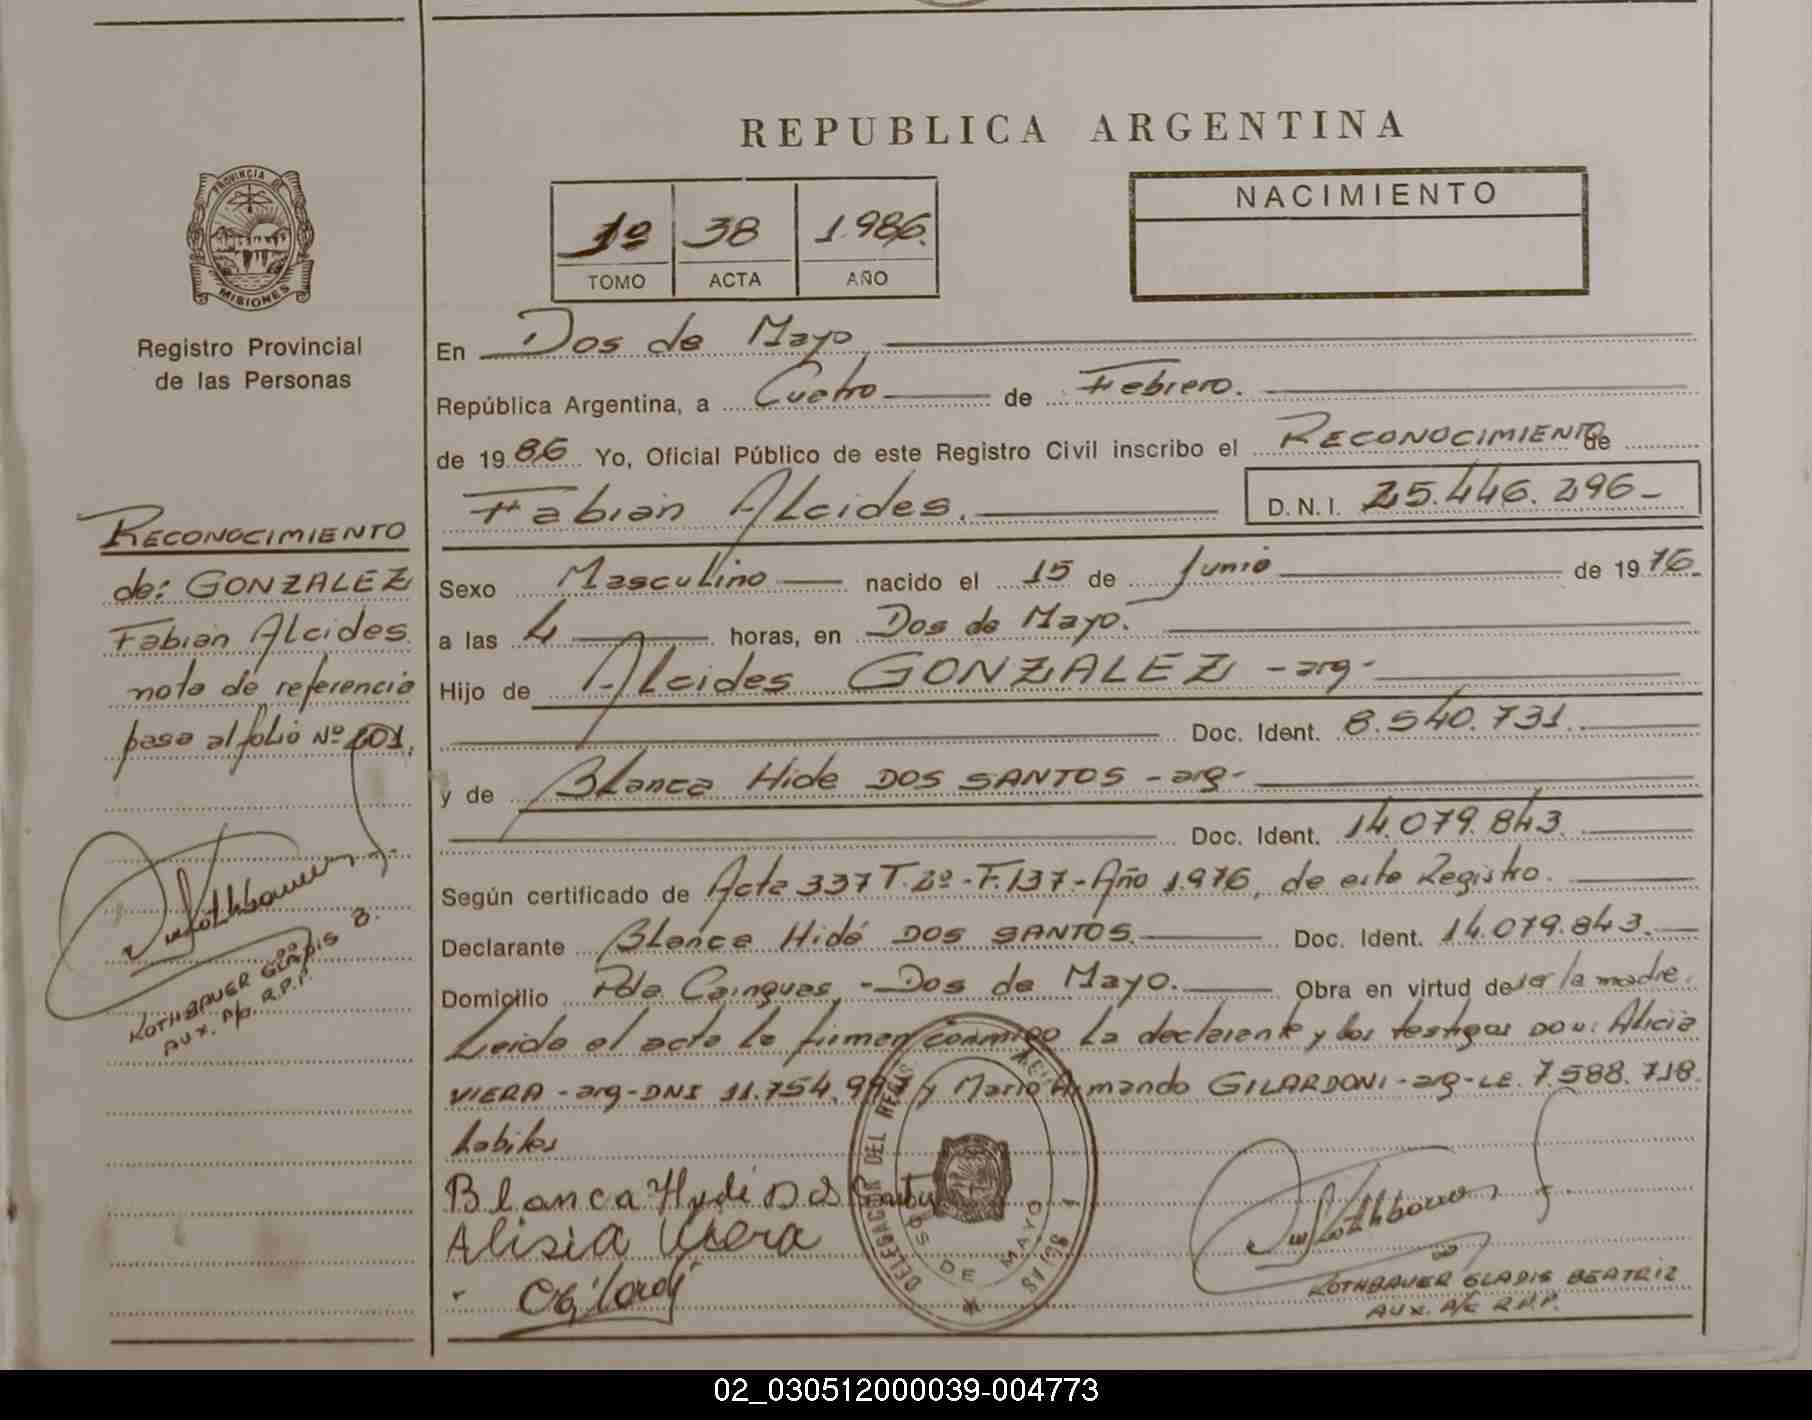 REPUBLICA ARGENTINA
PROVINCIA DE
MISIONES
Registro Provincial
de las Personas
1º 38 1.986.
TOMO ACTA AÑO
NACIMIENTO
En Dos de Mayo
República Argentina, a Cuatro de Febrero.
de 19 86 Yo, Oficial Público de este Registro Civil inscribo el RECONOCIMIENTO de
Fabián Alcides. D. N. I. 25.446.296-
Sexo Masculino nacido el 15 de Junio de 19 76.
a las 4 horas, en Dos de Mayo.
Hijo de Alcides GONZALEZ - arg -
Doc. Ident. 8.540.731.
y de Blanca Hide DOS SANTOS - arg -
Doc. Ident. 14.079.843.
Según certificado de Acta 337 T. 2º - F. 137 - Año 1.976, de este Registro.
Declarante Blanca Hidé DOS SANTOS. Doc. Ident. 14.079.843.
Domicilio Pdo. Cainguas, - Dos de Mayo. Obra en virtud de ser la madre.
Leida el acta la firman conmigo la declarante y los testigos Alicia
VIERA - arg - DNI 11.754.997 y Mario Armando GILARDONI - arg - LE. 7.588.718.
habiles
Blanca Hydé D S Santos
Alisia Viera
DOS DE MAYO
ROTHBAUER GLADIS BEATRIZ
AUX. A/C R.P.P.
RECONOCIMIENTO
de: GONZALEZ
Fabian Alcides.
nota de referencia
pasa al folio Nº 201.
ROTHBAUER GLADIS B.
AUX. A/C. R.P.P.
02_030512000039-004773